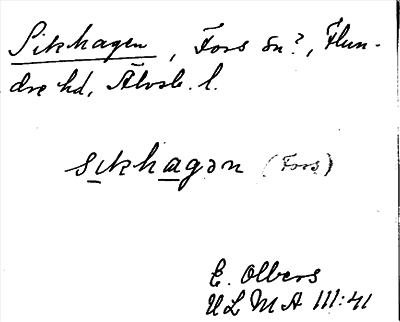 Sikhagen, Fors sn?, Flun-
dre hd, Älvsb. l.
sıkhagən (Fors)
E. Olbers
ULMA 111:41